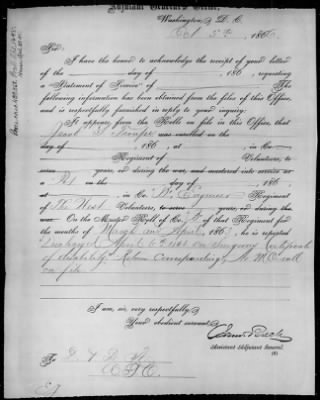 Adjutant General's Office,
Washington, D. C.
Oct 5th, 1866
Sir:
I have the honor to acknowledge the receipt of your letter
of the day of , 186 , requesting
a "Statement of Service" of The
following information has been obtained from the files of this Office,
and is respectfully furnished in reply to your inquiry:
It appears from the Rolls on file in this Office, that
was enrolled on the
day of , 186 , at , in Co.
Regiment of Volunteers, to
serve years, or during the war, and mustered into service as
a Pvt on the day of , 186 ,
at , in Co. Engineer Regiment
of The West Volunteers, to serve years, or during the
war. On the Muster Roll of Co. of that Regiment for
the months of March and April, 186 , he is reported
Discharged April 6th on Surgeons Certificate
of disability. Return corresponding. No M.O. roll
on file
I am, sir, very respectfully,
Your obedient servant,
Assistant Adjutant General.
To